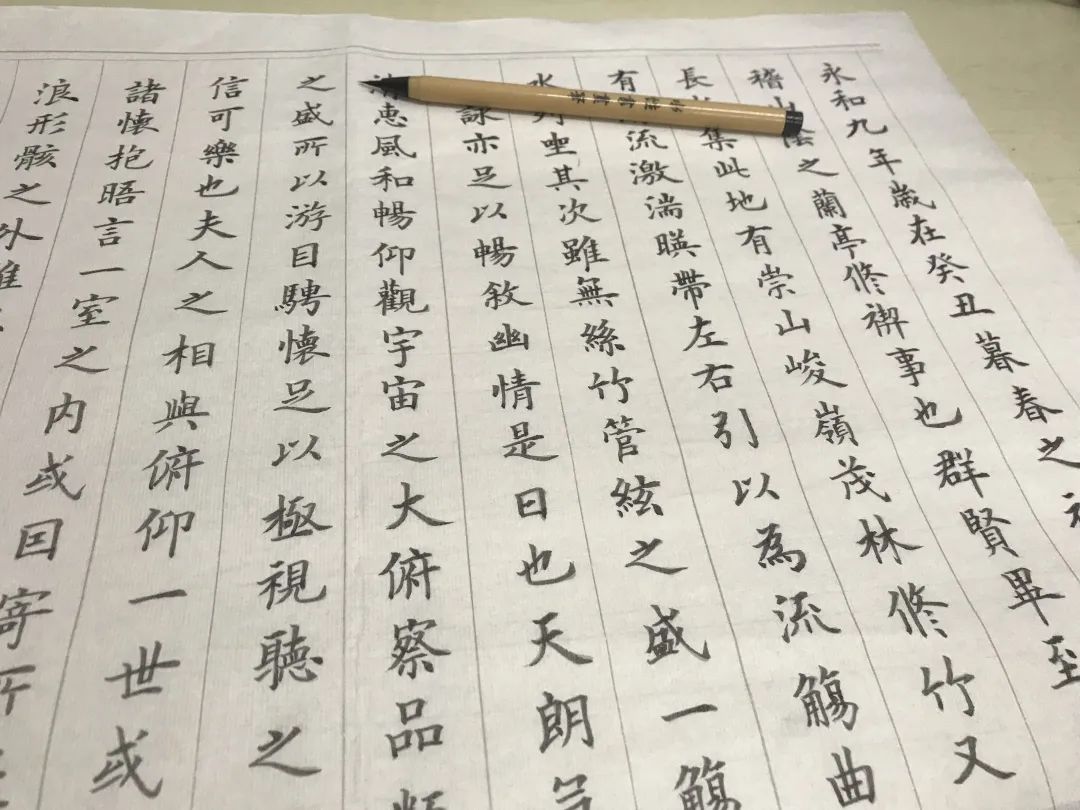 永和九年歲在癸丑暮春之
稽山陰之蘭亭修禊事也群賢畢至
長集此地有崇山峻嶺茂林修竹又
有流激湍暎帶左右引以為流觴曲
水列坐其次雖無絲竹管絃之盛一觴
詠亦足以暢敘幽情是日也天朗
清惠風和暢仰觀宇宙之大俯察品類
之盛所以游目騁懷足以極視聽之
信可樂也夫人之相與俯仰一世或
諸懷抱晤言一室之内或囙寄所
浪形骸之外雖